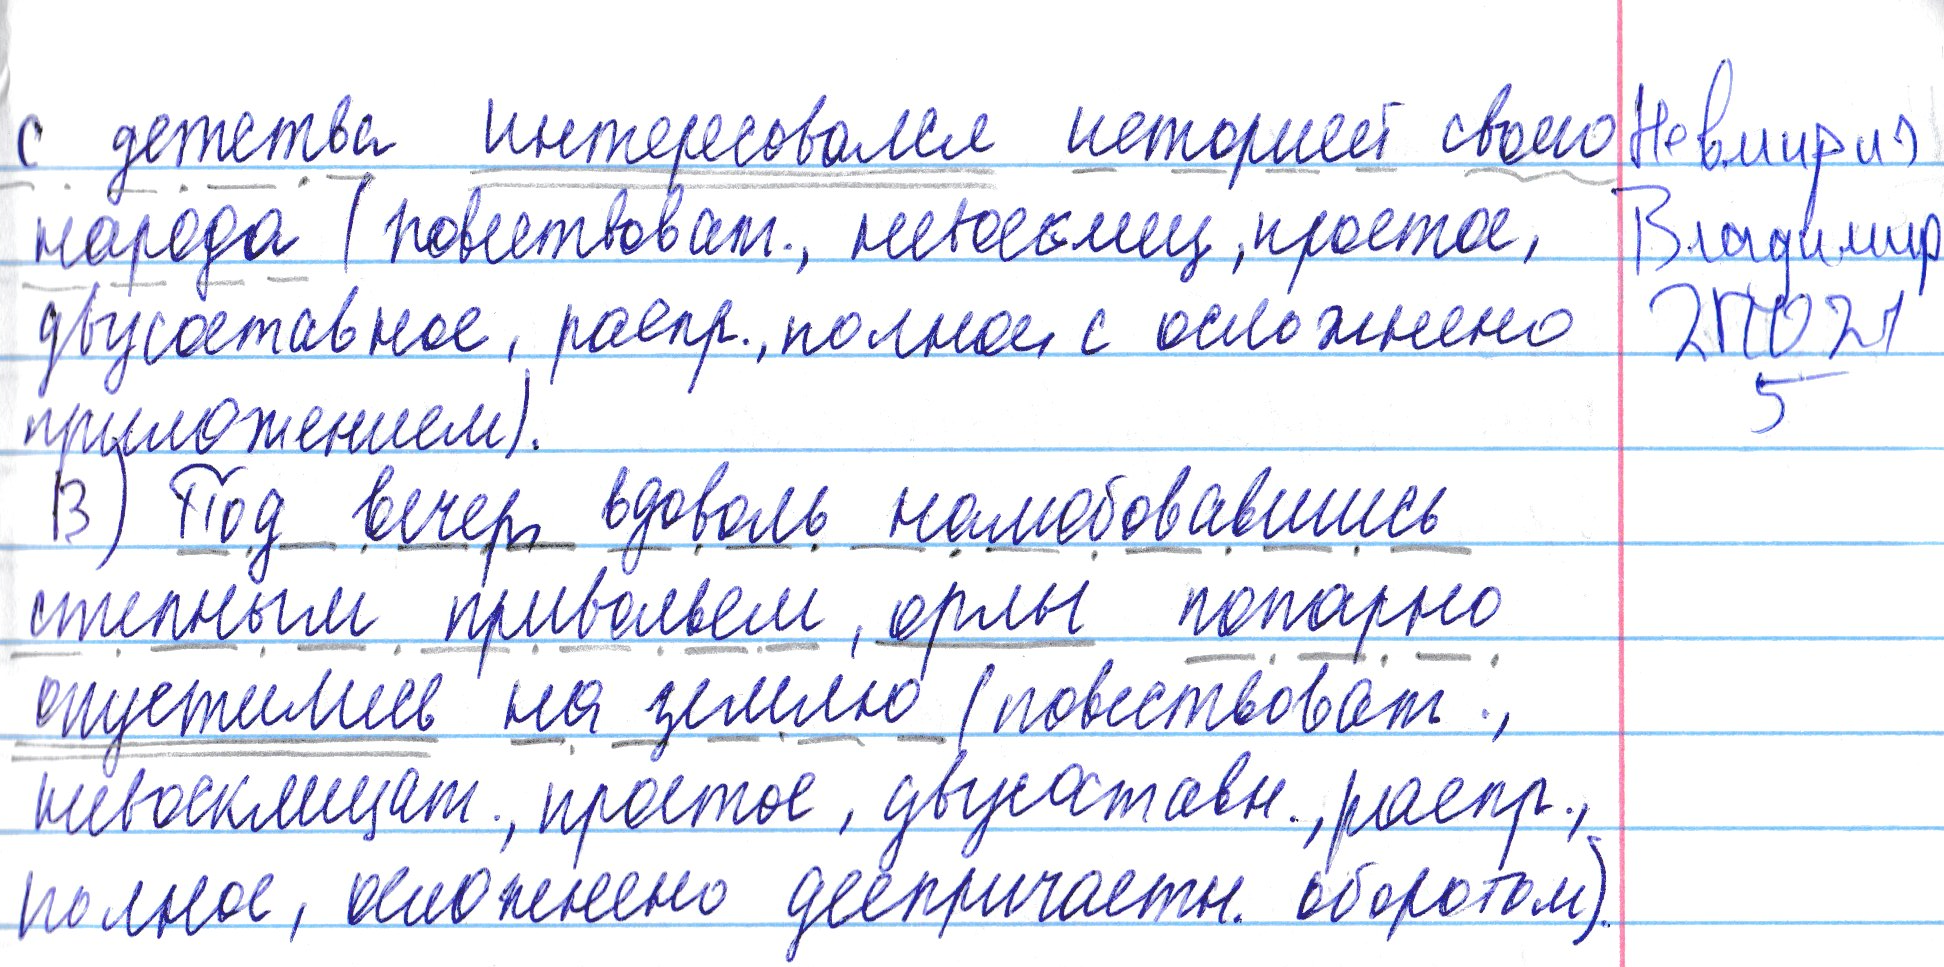 с детства интересовался историей своего
народа (повествоват., невосклиц, простое,
двусоставное, распр., полное, с осложнено
приложением).
В) Под вечер вдоволь налюбовавшись
степным привольем, орлы попарно
опустились на землю (повествоват.,
невосклицат., простое, двусоставн., распр.,
полное, осложнено деепричастн. оборотом).
Владимир
5